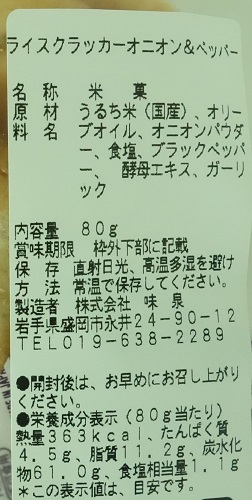 ライスクラッカーオニオン&ペッパー
名称　米　菓
原材　うるち米(国産)、オリー
料名　ブオイル、オニオンパウダ
ー、食塩、ブラックペッパ
ー、酵母エキス、ガーリ
ック
内容量　80g
賞味期限　枠外下部に記載
保存　直射日光、高温多湿を避け
方法　常温で保存してください。
製造者　株式会社　味　泉
岩手県盛岡市永井24-90-12
TEL019-638-2289
●開封後は、お早めにお召し上がり
ください。
●栄養成分表示(80g当たり)
熱量363kcal、たんぱく質
4.5g、脂質11.2g、炭水化
物61.0g、食塩相当量1.1g
*この表示値は、目安です。